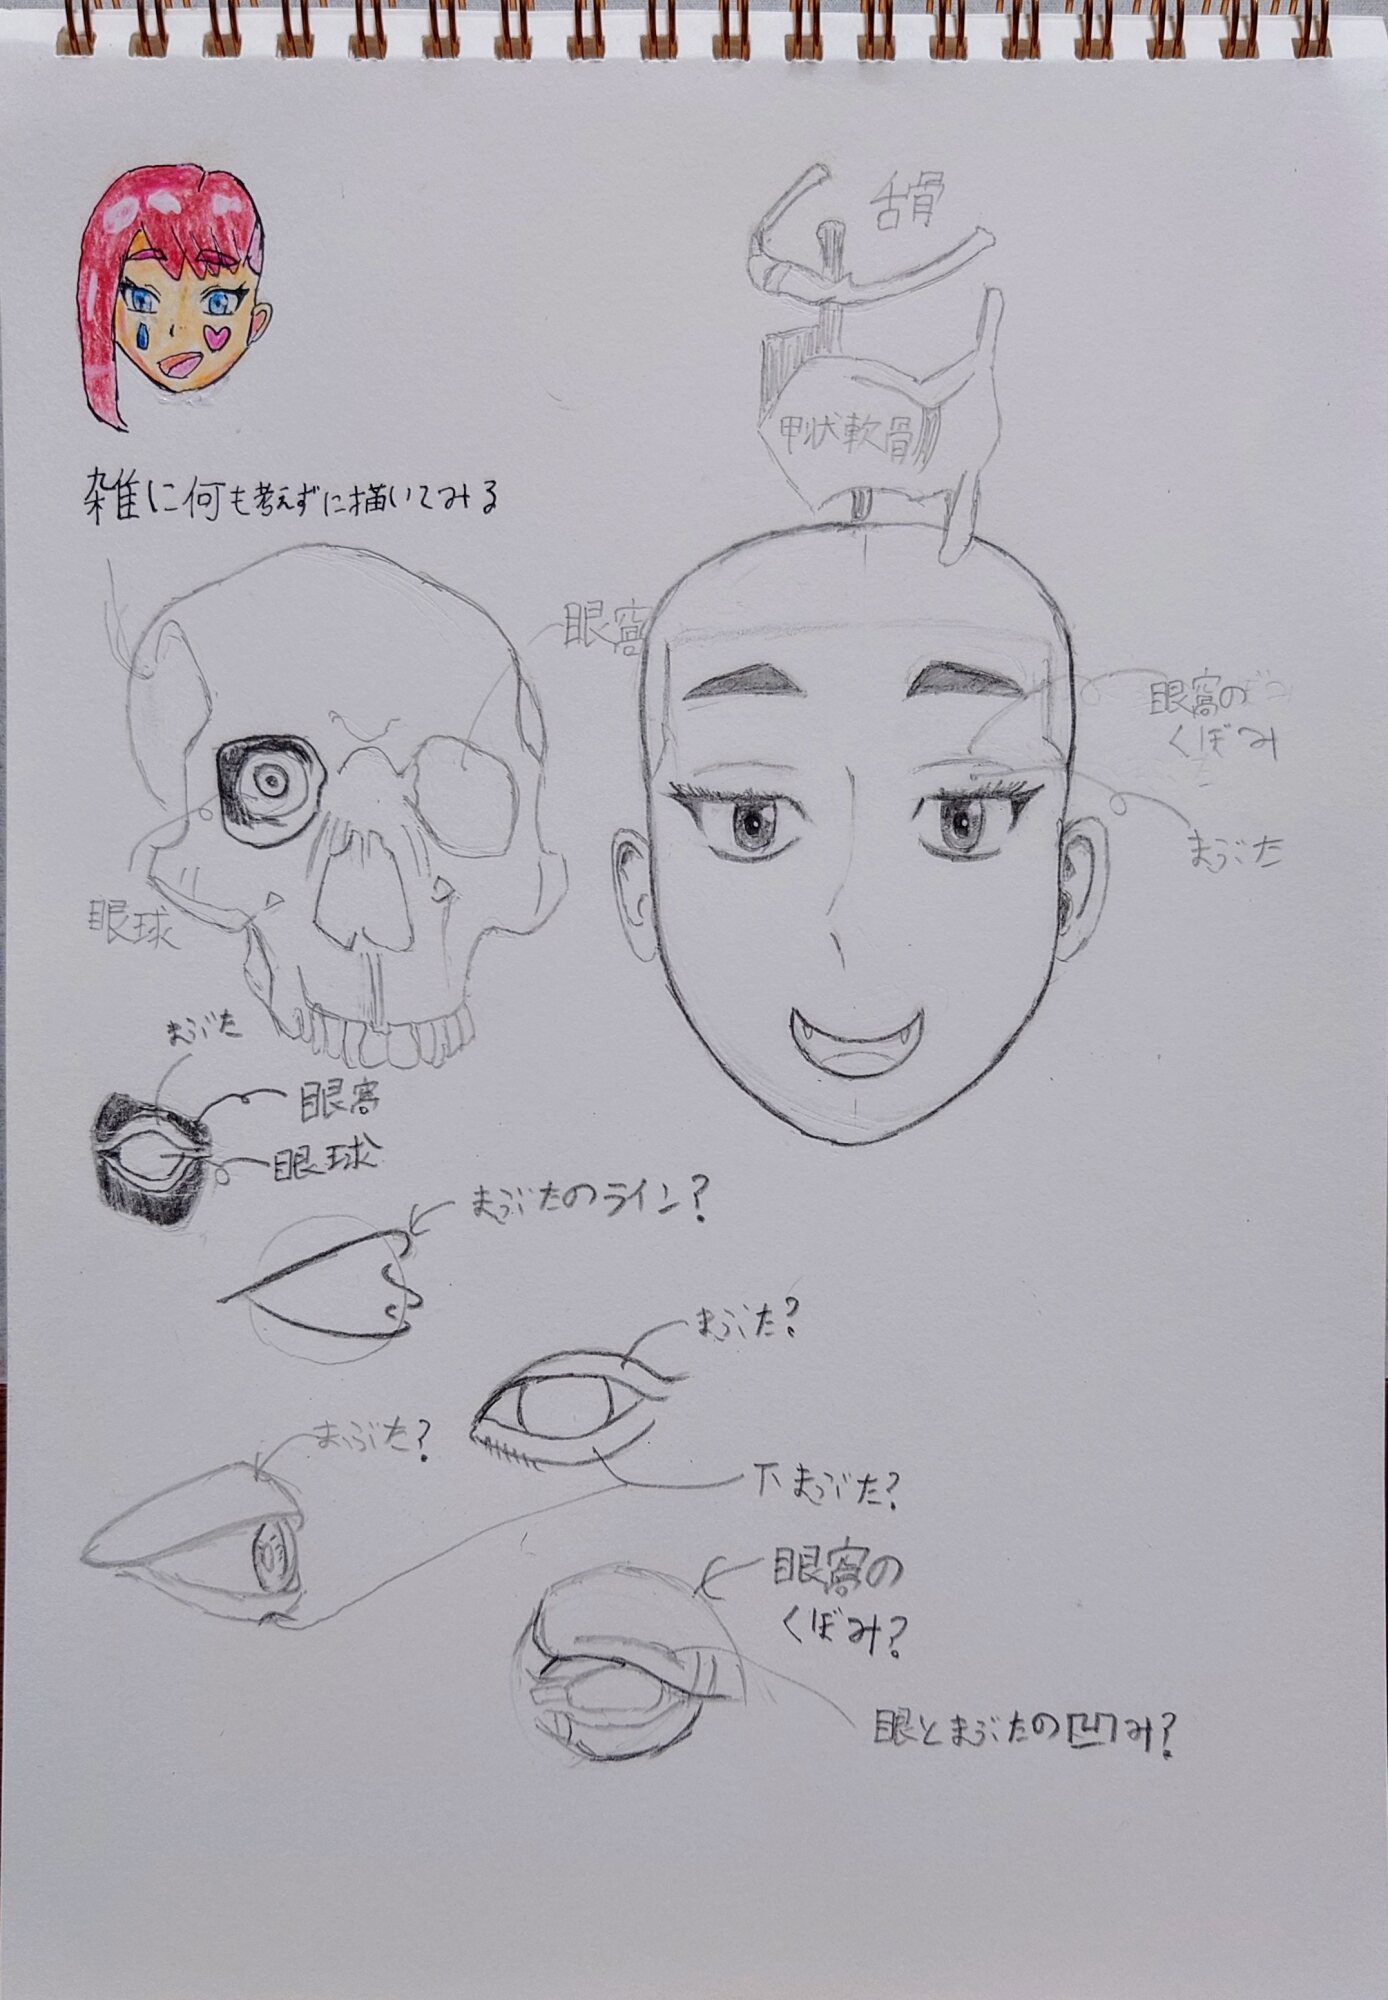 舌骨
甲状軟骨
雑に何も考えずに描いてみる
眼窩
眼窩の
くぼみ
まぶた
眼球
まぶた
眼窩
眼球
まぶたのライン?
まぶた?
まぶた?
下まぶた?
眼窩の
くぼみ?
眼とまぶたの凹み?